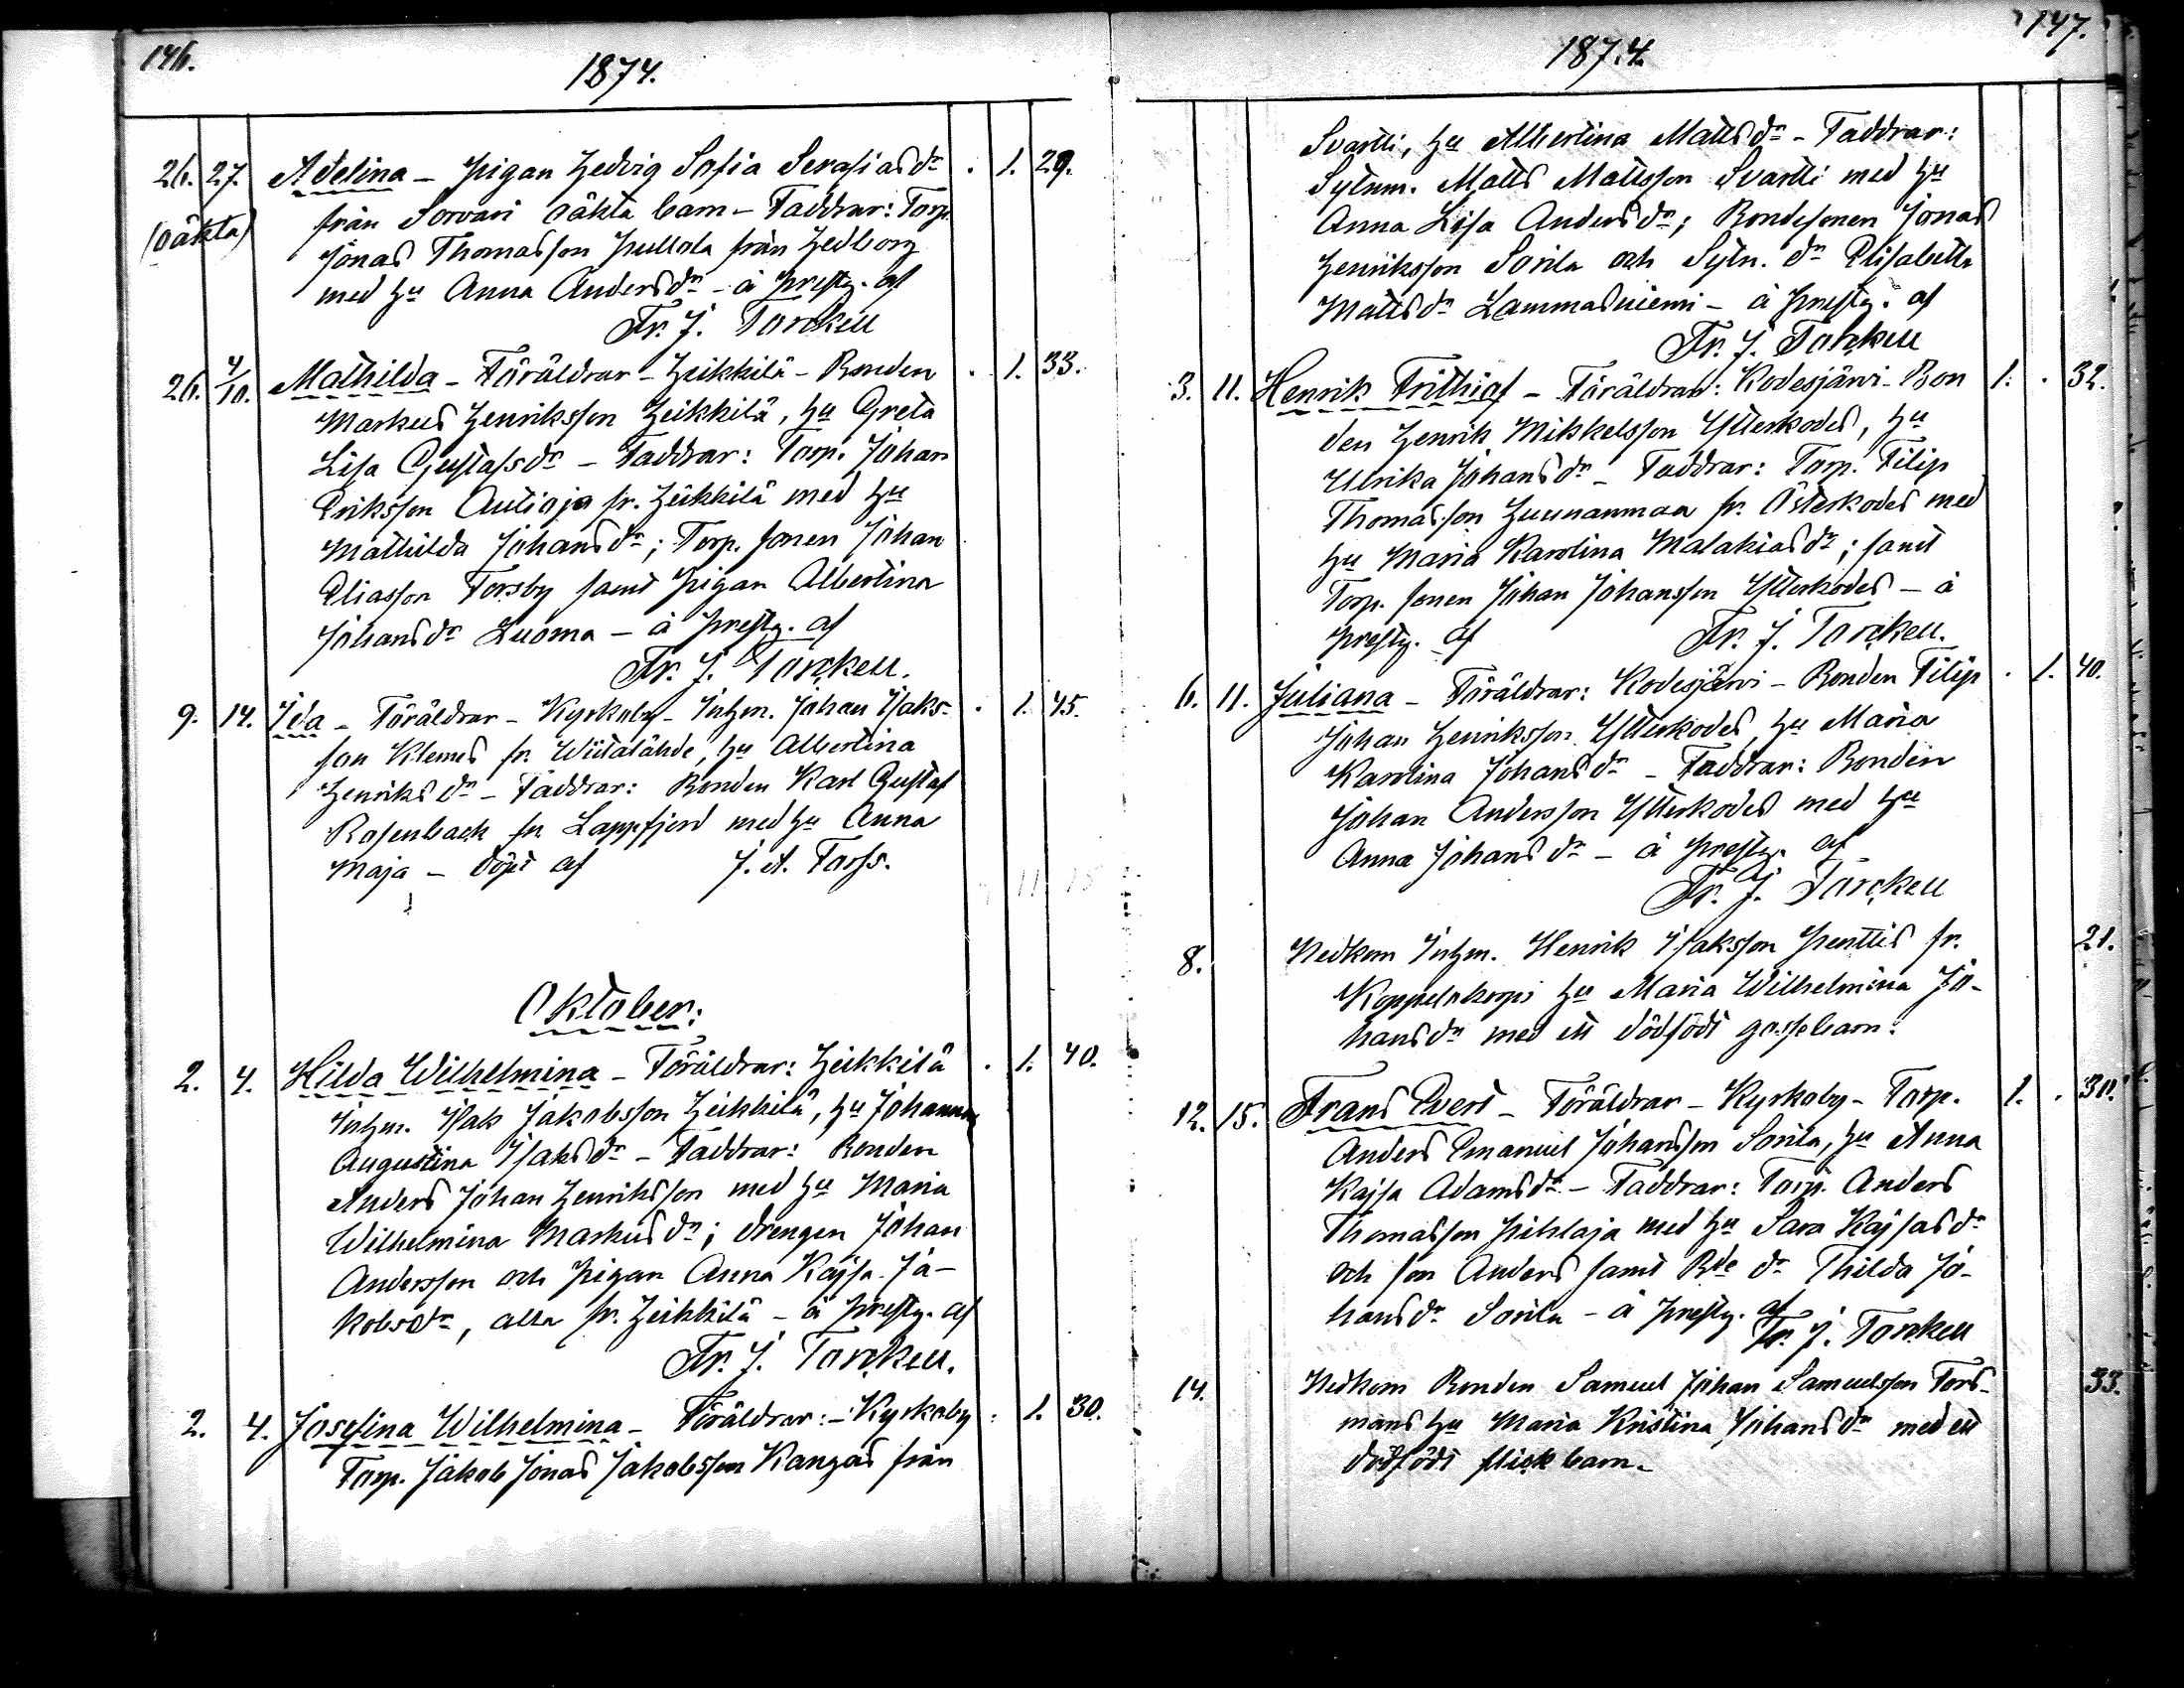 146.
1874.
26. 27. Adelina – Pigan Hedvig Sofia Serafiasdr . 1. 29.
(oäkta) från Sorvari oäkta barn – Faddrar: Torp.
Jonas Thomasson Pullola från Hedborg
med hu Anna Andersdr – å prestg. af
Fr. J. Torckell
26. 4/10. Mathilda – Föräldrar – Heikkilä – Bonden . 1. 33.
Markus Henriksson Heikkilä, hu Greta
Lisa Gustafsdr – Faddrar: Torp. Johan
Eriksson Autioja fr. Heikkilä med hu
Mathilda Johansdr; Torp. sonen Johan
Eliasson Forsby samt pigan Albertina
Johansdr Luoma – å prestg. af
Fr. J. Torckell.
9. 14. Ida – Föräldrar – Kyrkoby – Inhm. Johan Isaks- . 1. 45.
son Klemes fr. Wiitalähde, hu Albertina
Henriksdr – Faddrar: Bonden Karl Gustaf
Rosenback fr. Lappfjerd med hu Anna
Maja – döpt af J. A. Forss.
Oktober:
2. 4. Hilda Wilhelmina – Föräldrar: Heikkilä . 1. 40.
Inhm. Isak Jakobsson Heikkilä, hu Johanna
Augustina Isaksdr – Faddrar: Bonden
Anders Johan Henriksson med hu Maria
Wilhelmina Markusdr; drengen Johan
Andersson och pigan Anna Kajsa Ja-
kobsdr, alla fr. Heikkilä – å prestg. af
Fr. J. Torckell.
2. 4. Josefina Wilhelmina – Föräldrar: – Kyrkoby . 1. 30.
Torp. Jakob Jonas Jakobsson Kangas från
147.
1874.
Svartti, hu Albertina Mattsdr – Faddrar:
Sytnm. Matts Mattsson Svartti med hu
Anna Lisa Andersdr; Bondesonen Jonas
Henriksson Sorila och Sytn. dr Elisabeth
Mattsdr Lammasniemi – å prestg. af
Fr. J. Torckell
3. 11. Henrik Frithiof – Föräldrar: Kodesjärvi – Bon 1. . 32.
den Henrik Mikkelsson Ytterkodes, hu
Ulrika Johansdr – Faddrar: Torp. Filip
Thomasson Huunanmaa fr. Österkodes med
hu Maria Karolina Malakiasdr; samt
Torp. sonen Johan Johansson Ytterkodes – å
prestg. af Fr. J. Torckell.
6. 11. Juliana – Föräldrar: Kodesjärvi – Bonden Filip . 1. 40.
Johan Henriksson Ytterkodes, hu Maria
Karolina Johansdr – Faddrar: Bonden
Johan Andersson Ytterkodes med hu
Anna Johansdr – å prestg. af
Fr. J. Torckell
8. Nedkom Inhm. Henrik Isaksson Penttis fr. 21.
Koppelokorpi hu Maria Wilhelmina Jo-
hansdr med ett dödfödt gossebarn.
12. 15. Frans Evert – Föräldrar – Kyrkoby – Torp. 1. . 30.
Anders Emanuel Johansson Sorila, hu Anna
Kajsa Adamsdr – Faddrar: Torp. Anders
Thomasson Pihlaja med hu Sara Kajsasdr
och son Anders samt Bde dr Thilda Jo-
hansdr Sorila – å prestg. af
Fr. J. Torckell
14. Nedkom Bonden Samuel Johan Samuelsson Fors- 33.
mans hu Maria Kristina Johansdr med ett
dödfödt flickbarn.